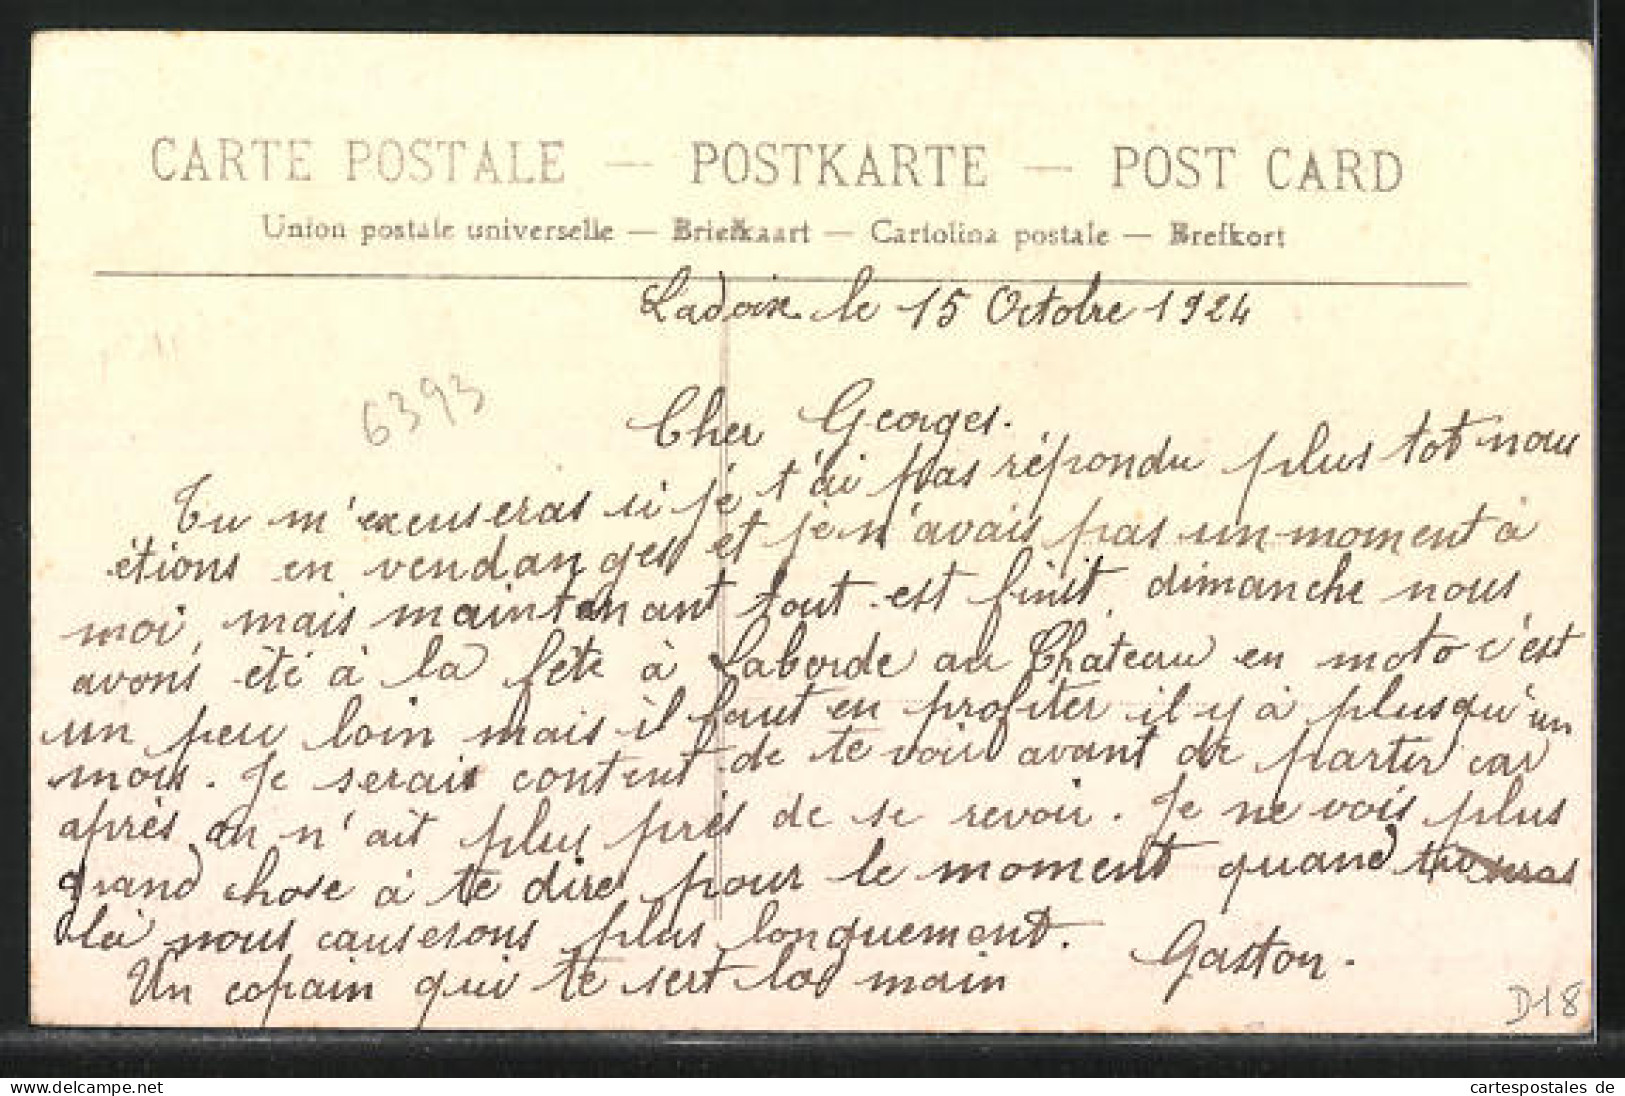 CARTE POSTALE — POSTKARTE — POST CARD
Union postale universelle — Briefkaart — Cartolina postale — Brefkort
Ladoix le 15 Octobre 1924
6393
Cher Georges.
Tu m'excuseras si je t'ai pas répondu plus tot nous
étions en vendanges et je n'avais pas un moment à
moi, mais maintanant tout est finit, dimanche nous
avons été à la fête à Laborde au Château en moto c'est
un peu loin mais il faut en profiter il y à plusqu'un
mois. Je serais content de te voir avant de partir car
après on n'ait plus près de se revoir. Je ne vois plus
grand chose à te dire pour le moment quand tu seras
là nous causerons plus longuement.
Un copain qui te sert la main
Gaston.
D18
carte-postale.com
cartespostales de